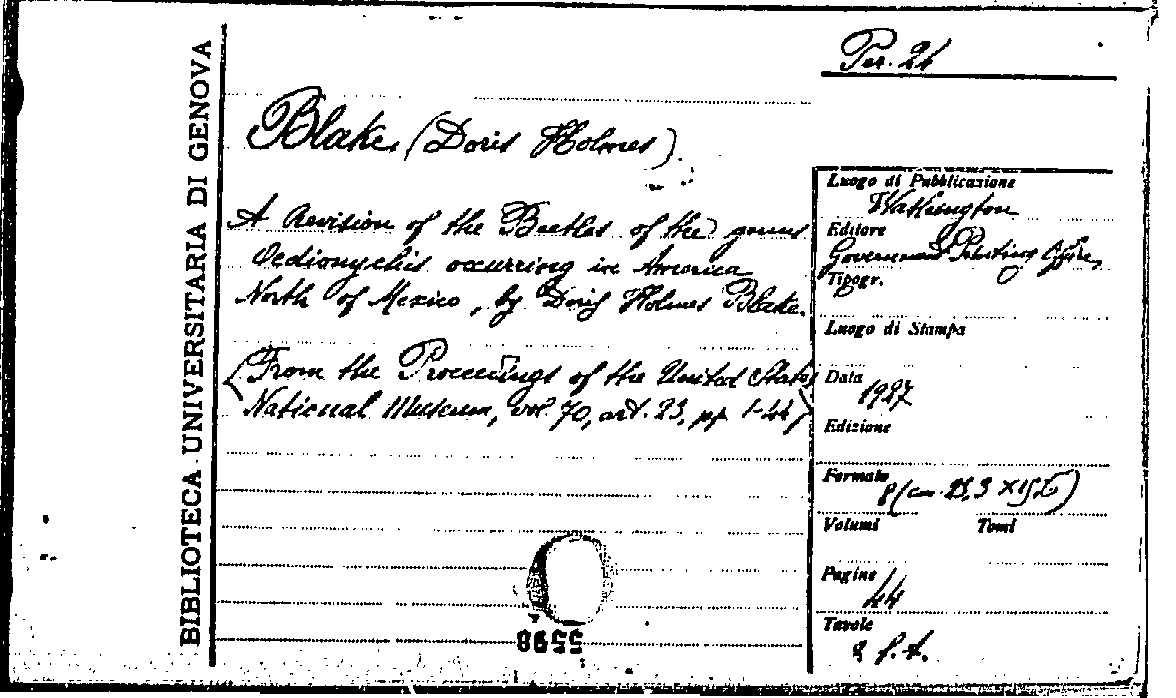 BIBLIOTECA UNIVERSITARIA DI GENOVA
Per. 24
Blake (Doris Holmes).
A Revision of the Beetles of the genus
Oedionychis occurring in America
North of Mexico, by Doris Holmes Blake.
(From the Proceedings of the United States
National Museum, vol. 70, art. 23, pp 1-44)
5598
Luogo di Pubblicazione
Washington
Editore
Government Printing Office
Tipogr.
Luogo di Stampa
Data
1927
Edizione
Formato
8 (cm.
Volumi Tomi
Pagine
44
Tavole
2 f.t.